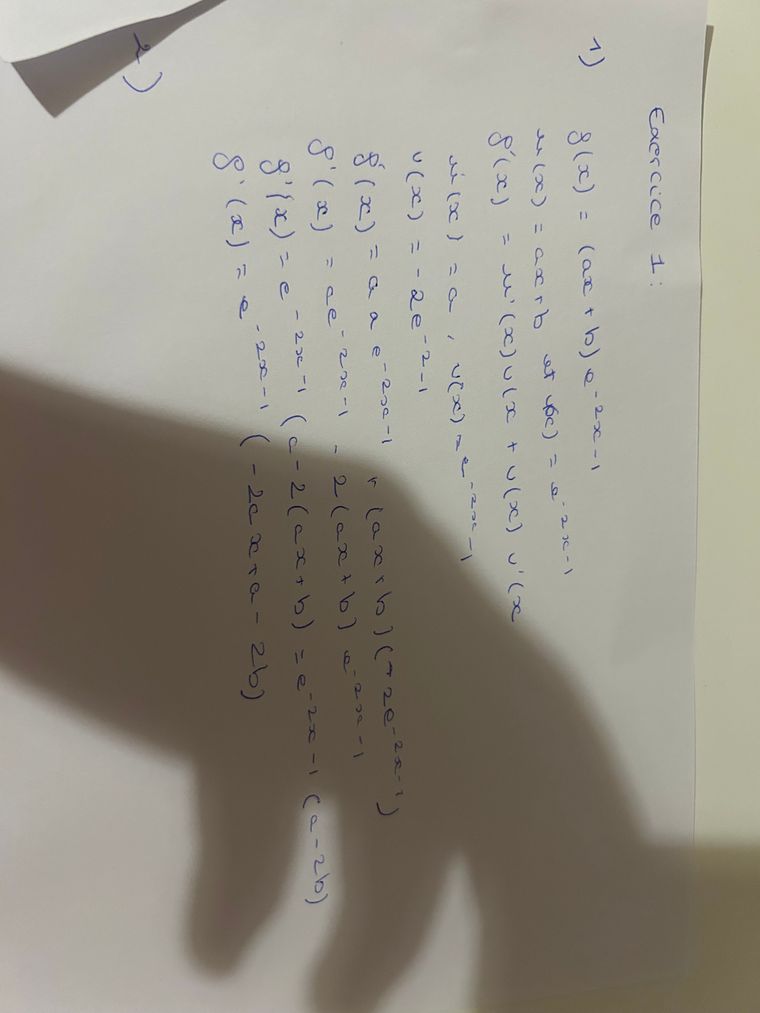 Exercice 1:
1)
g(x) = (ax + b) e^-2x-1
u(x) = ax+b et v(x) = e^-2x-1
g'(x) = u'(x) v(x + u(x) v'(x
u'(x) = a, v(x) = e^-2x-1
v(x) = -2e^-2-1
g'(x) = a e^-2x-1 + (ax+b) (-2e^-2x-1)
g'(x) = ae^-2x-1 - 2(ax+b) e^-2x-1
g'(x) = e^-2x-1 (a-2(ax+b) = e^-2x-1 (a-2b)
g'(x) = e^-2x-1 (-2ax+a-2b)
2)